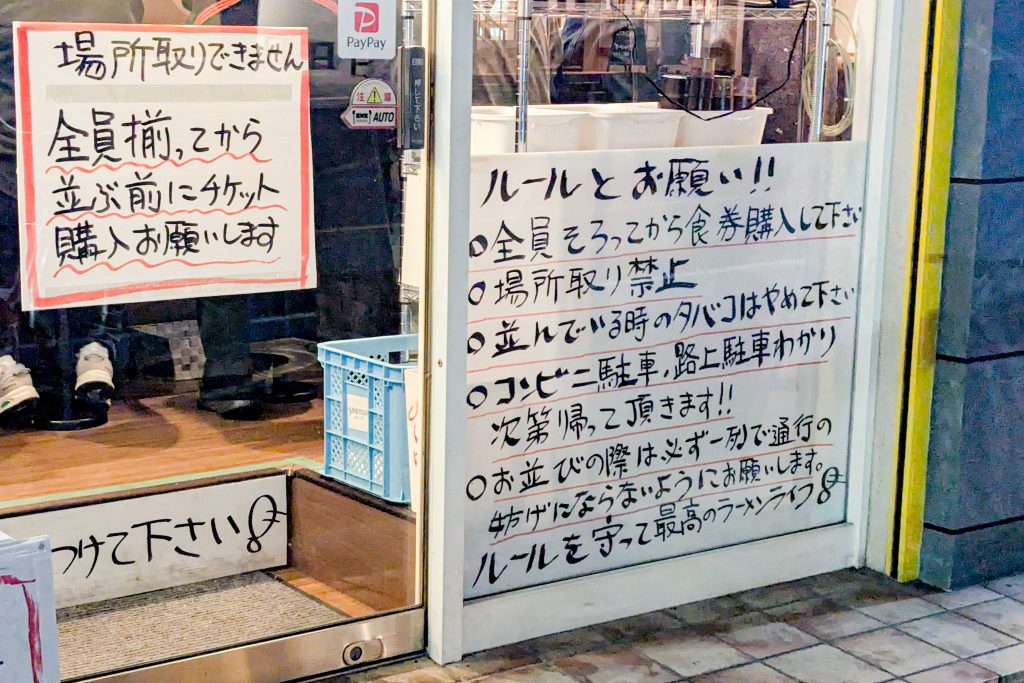 場所取りできません
全員揃ってから
並ぶ前にチケット
購入お願いします
PayPay
注意
AUTO
押して下さい
つけて下さい
ルールとお願い!!
○全員そろってから食券購入して下さい
○場所取り禁止
○並んでいる時のタバコはやめて下さい
○コンビニ駐車,路上駐車わかり
次第帰って頂きます!!
○お並びの際は必ず一列で通行の
妨げにならないようにお願いします。
ルールを守って最高のラーメンライフ